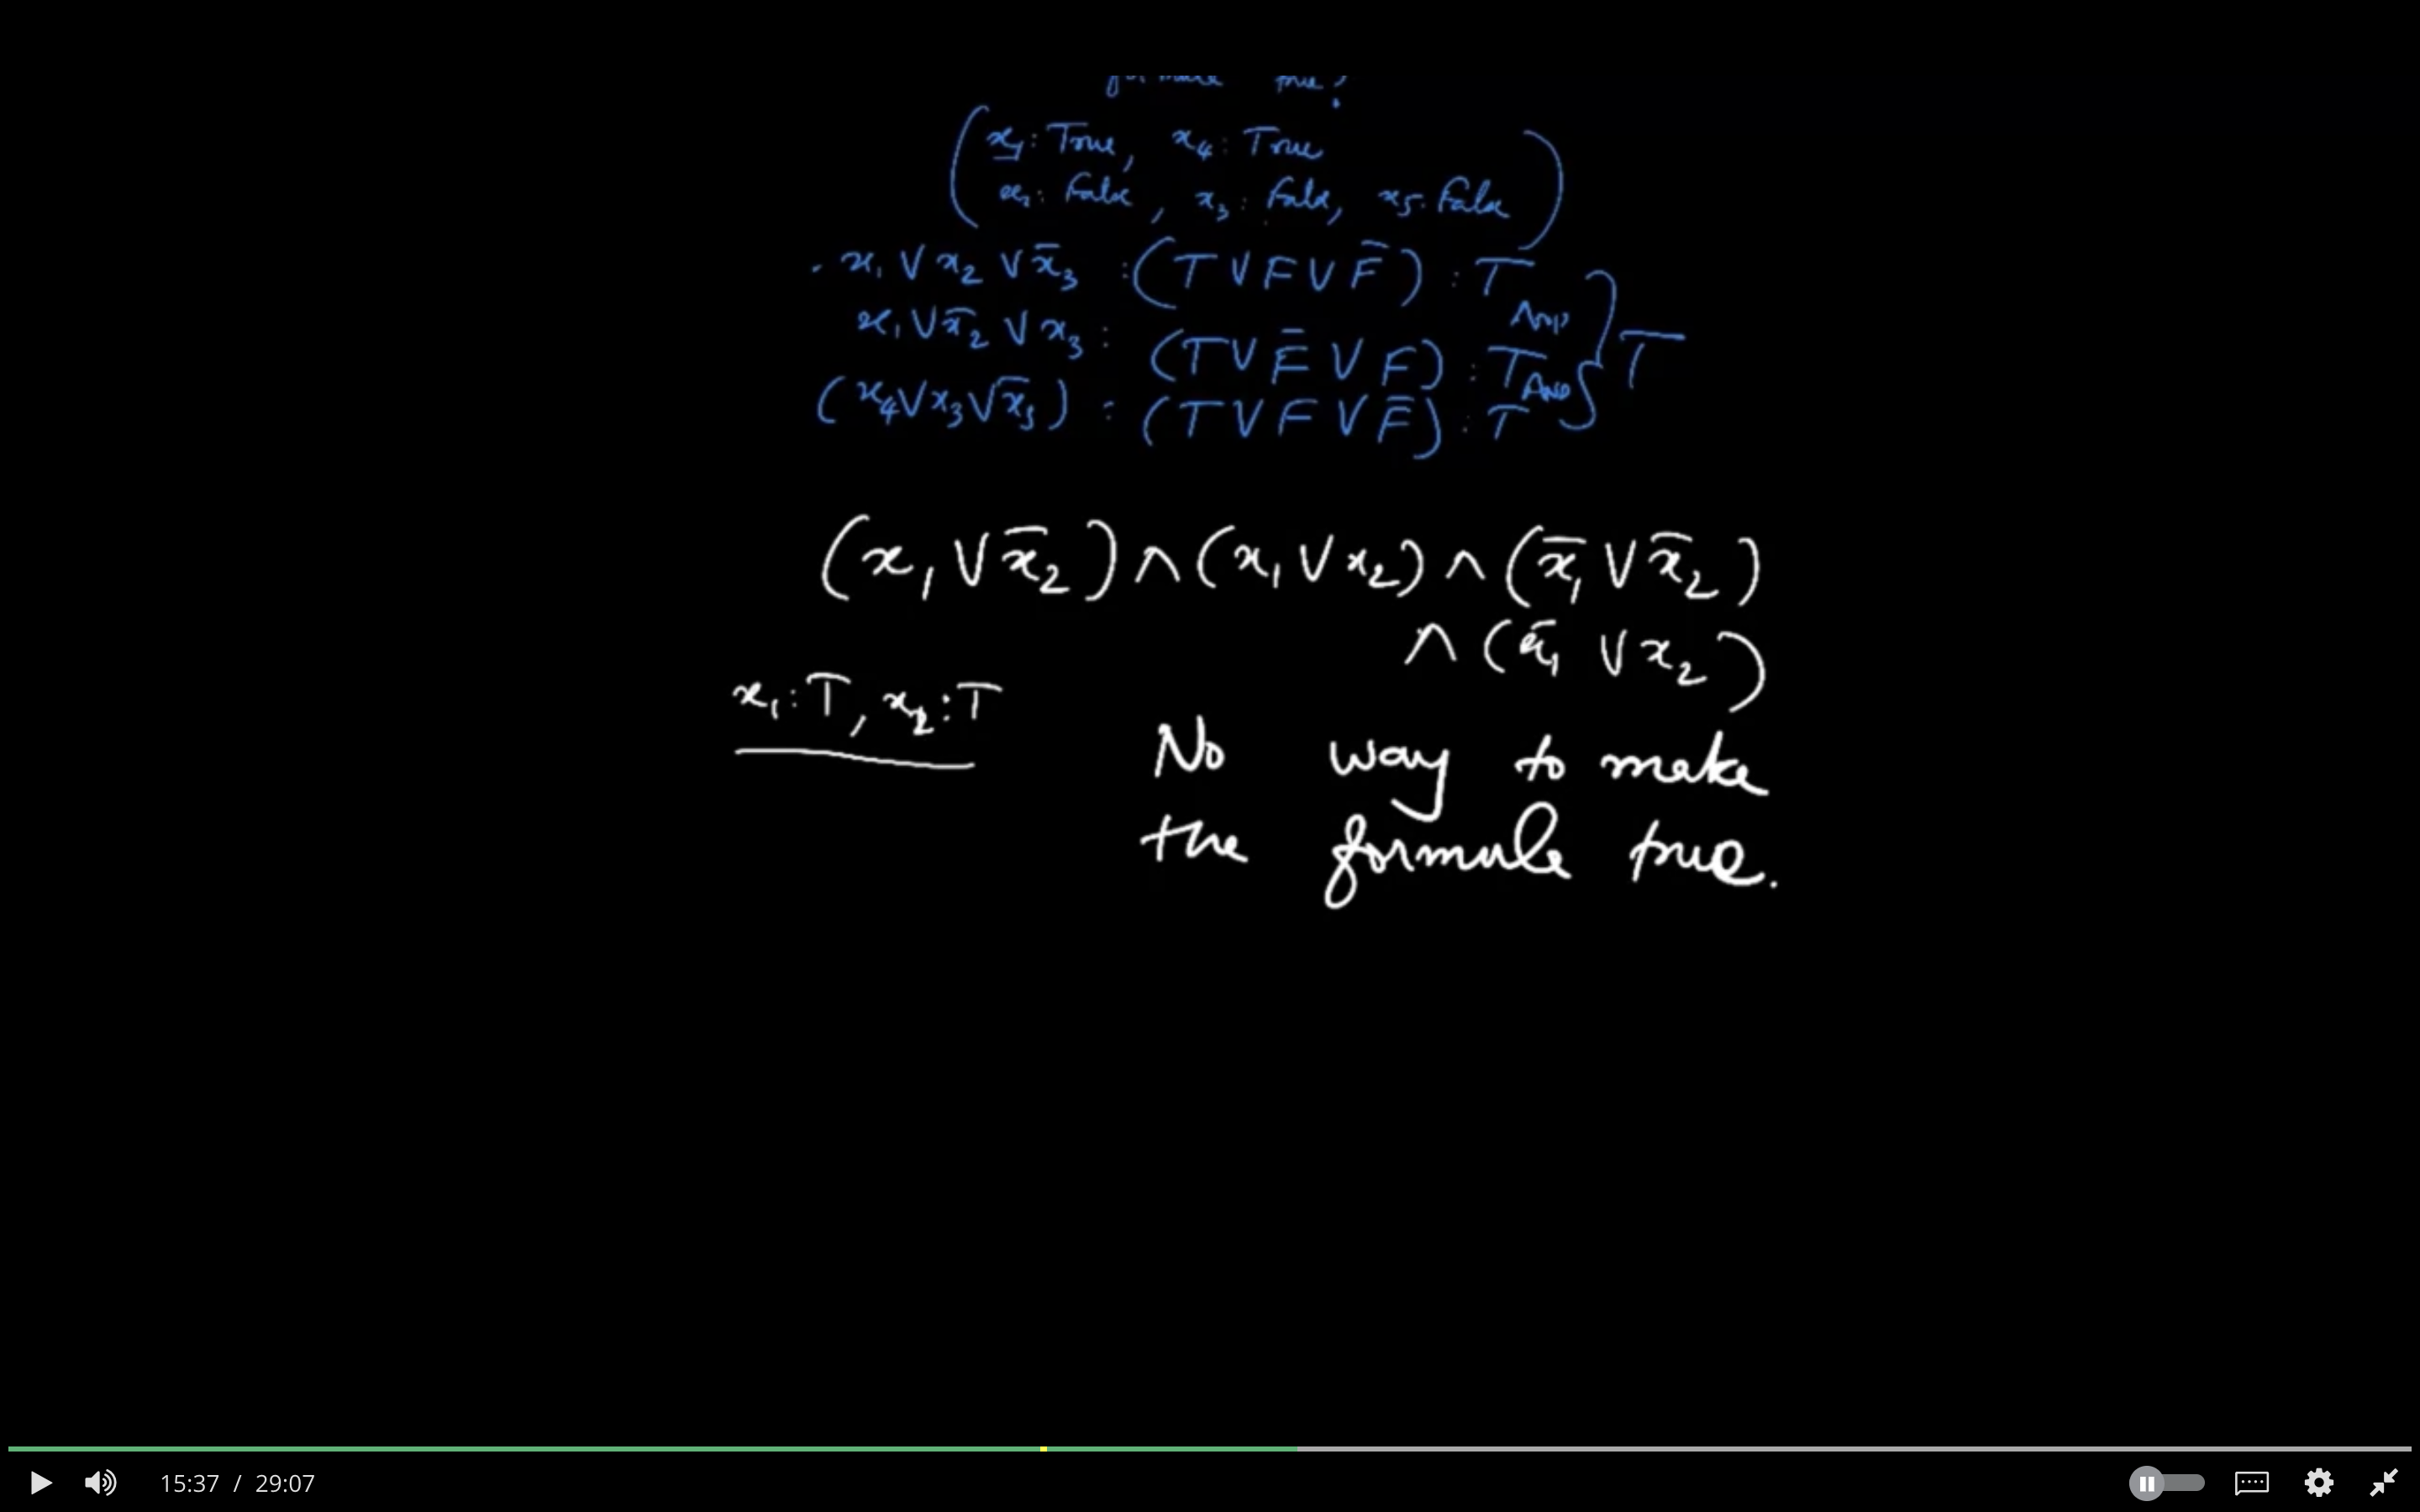 true?
(x₁: True, x₄: True
x₂: False, x₃: False, x₅: False)
x₁ V x₂ V x̄₃ : (T V F V F̄) : T
AND
x₁ V x̄₂ V x₃ : (T V F̄ V F) : T } T
AND
(x₄ V x₃ V x̄₅) : (T V F V F̄) : T
(x₁ V x̄₂) ∧ (x₁ V x₂) ∧ (x̄₁ V x̄₂)
∧ (x̄₁ V x₂)
x₁: T, x₂: T
No way to make
the formula true.
15:37 / 29:07